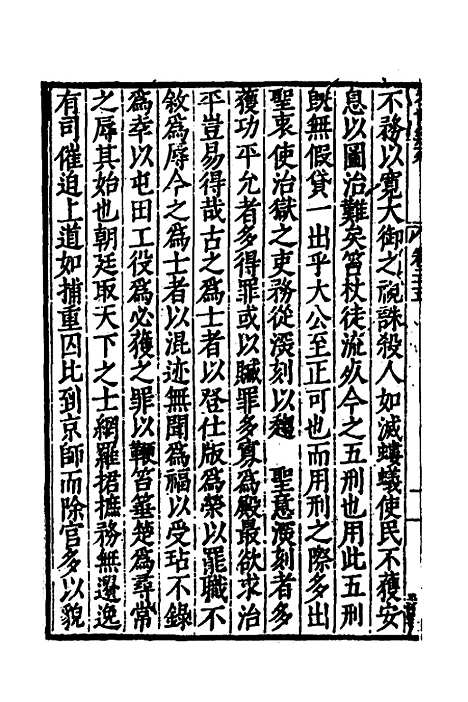 不務以寬大御之視誅殺人如滅螻蟻使民不獲安
息以圖治難矣笞杖徒流死今之五刑也用此五刑
旣無假貸一出乎大公至正可也而用刑之際多出
聖衷使治獄之吏務從深刻以趨 聖意深刻者多
獲功平允者多得罪或以贓罪多寡爲殿最欲求治
平豈易得哉古之爲士者以登仕版爲榮以罷職不
敘爲辱今之爲士者以混迹無聞爲福以受玷不錄
爲幸以屯田工役爲必獲之罪以鞭笞箠楚爲尋常
之辱其始也朝廷取天下之士網羅捃摭務無遺逸
有司催迫上道如捕重囚比到京師而除官多以貌